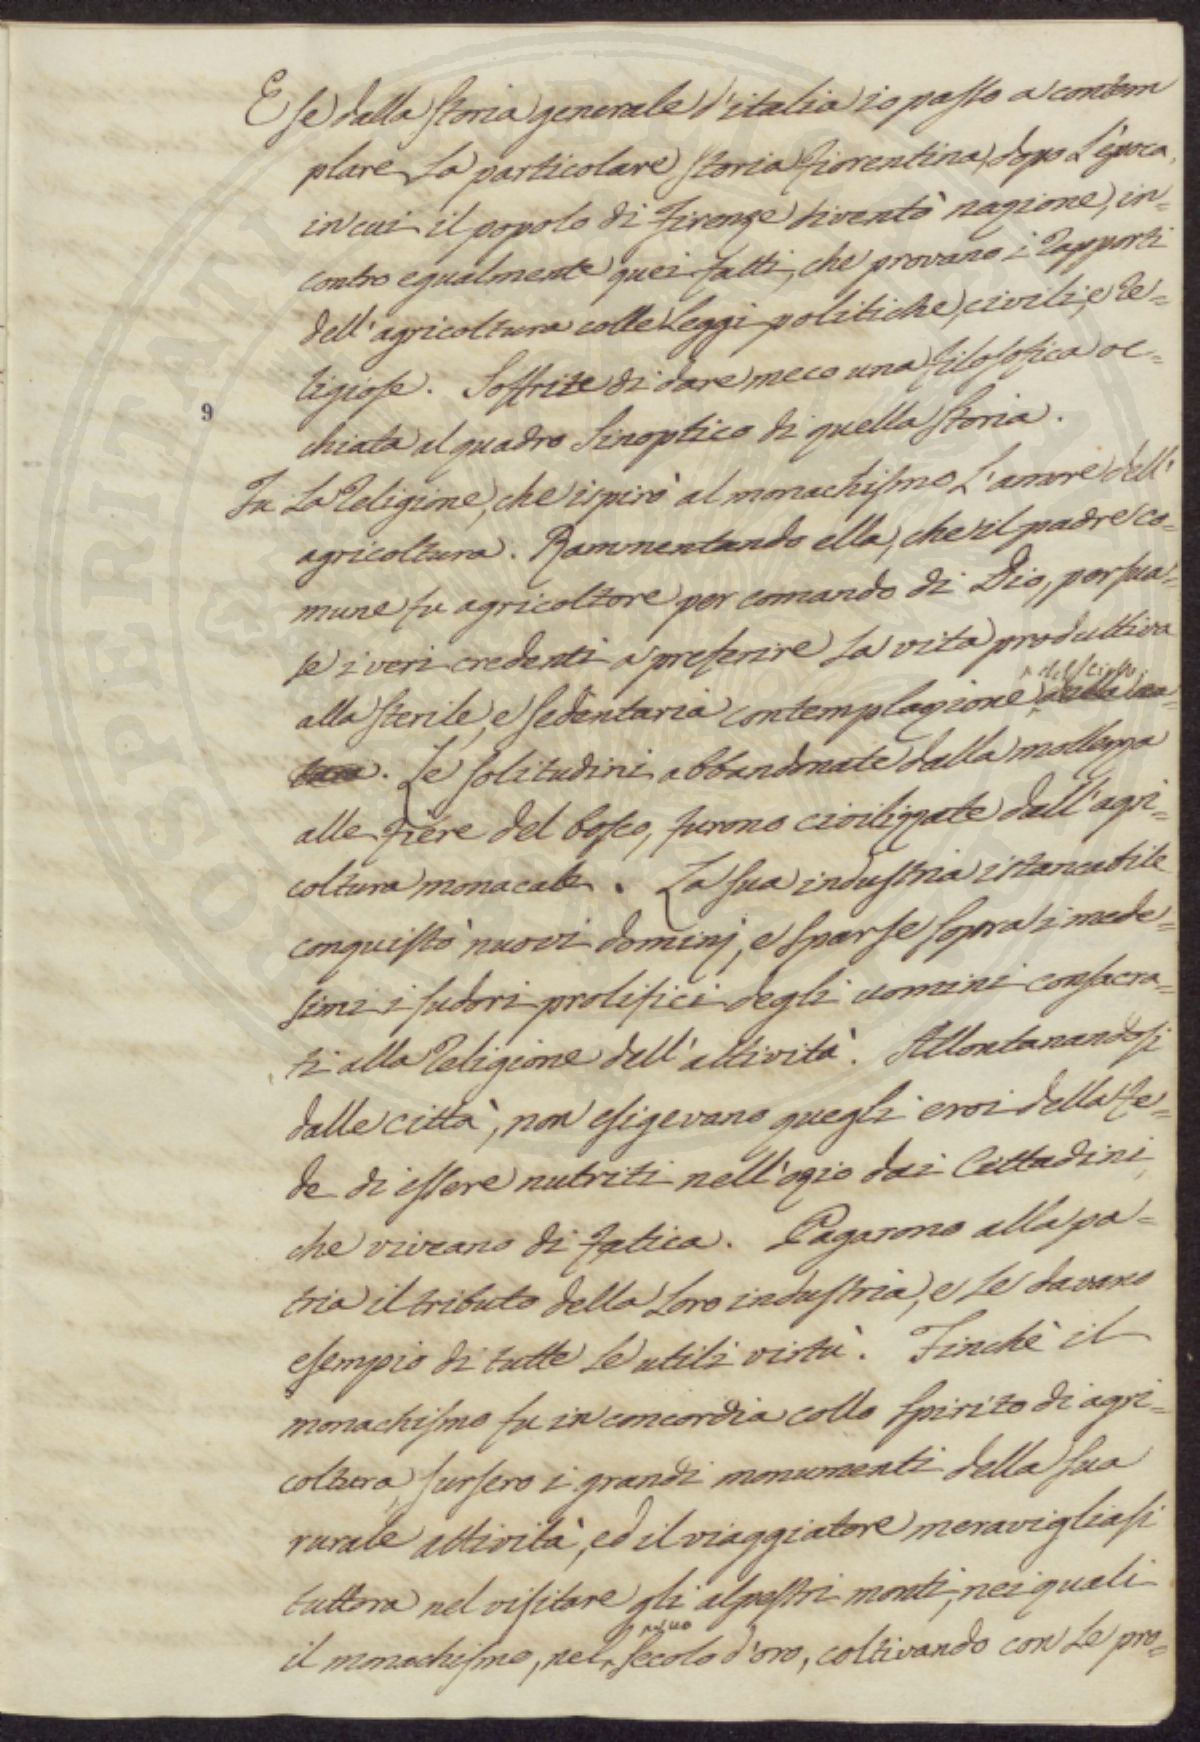 E se dalla Storia generale d'italia io passo a contem
plare la particolare Storia Fiorentina, dopo l'epoca,
in cui il popolo di Firenze diventò nazione, in=
contro egualmente quei fatti, che provano i rapporti
dell'agricoltura colle Leggi politiche, civili, e re=
ligiose. Soffrite di dare meco una filosofica oc=
9
chiata al quadro Sinoptico di quella Storia.
Fu la Religione, che ispirò al monachismo l'amore dell'
agricoltura. Rammentando ella, che il padre co=
mune fu agricoltore per comando di Dio, persua=
se i veri credenti a preferire la vita produttiva
alla sterile, e sedentaria contemplazione
. Le solitudini abbandonate dalla mollezza
alle fiere del bosco, furono civilizzate dall'agri=
coltura monacale. La sua industria istancabile
conquistò nuovi dominj, e sparse sopra i mede=
simi i sudori prolifici degli uomini consacra=
ti alla Religione dell'attività. Allontanandosi
dalle città, non esigevano quegli eroi della fe=
de di essere nutriti nell'ozio dai Cittadini,
che viveano di fatica. Pagarono alla pa=
tria il tributo della loro industria, e le davano
esempio di tutte le utili virtù. Finchè il
monachismo fu in concordia collo spirito di agri=
coltura, sursero i grandi monumenti della sua
rurale attività, ed il viaggiatore meravigliasi
tuttora nel visitare gli alpestri monti, nei quali
il monachismo, nel suo secolo d'oro, coltivando con le pro=